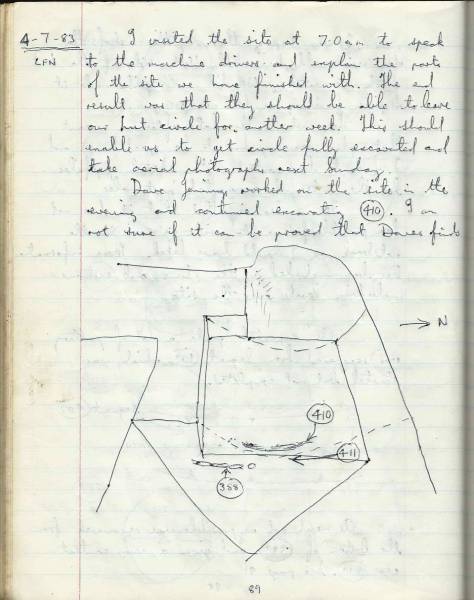 4-7-83
LFN
I visited the site at 7.0am to speak
to the machine drivers and explain the parts
of the site we have finished with. The end
result was that they should be able to leave
our hut circle for another week. This should
enable us to get circle fully excavated and
take aerial photographs next Sunday.
Dave worked on the site in the
evening and continued excavating 410. I am
not sure if it can be proved that Daves finds
N
410
411
388
89